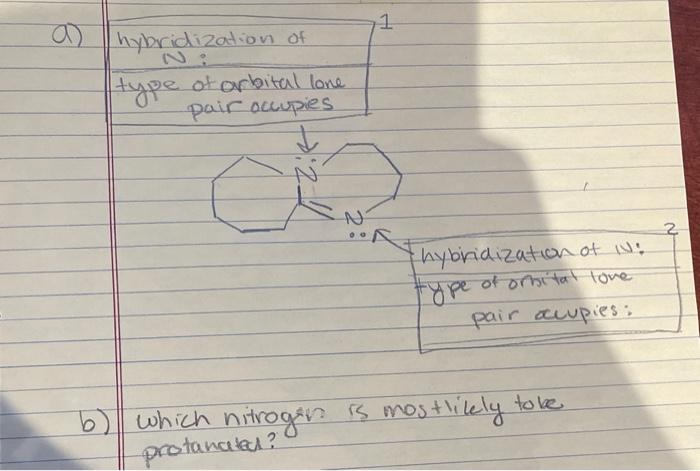 a)
1
hybridization of
N:
type of orbital lone
pair occupies
N
N
2
hybridization of N:
type of orbital lone
pair occupies:
b) which nitrogen is most likely to be
protanated?